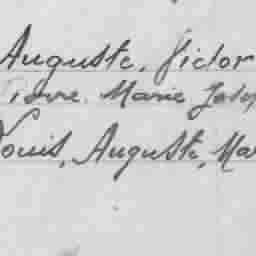 Auguste, Victor
Marie Jose
Louis, Auguste, Mar